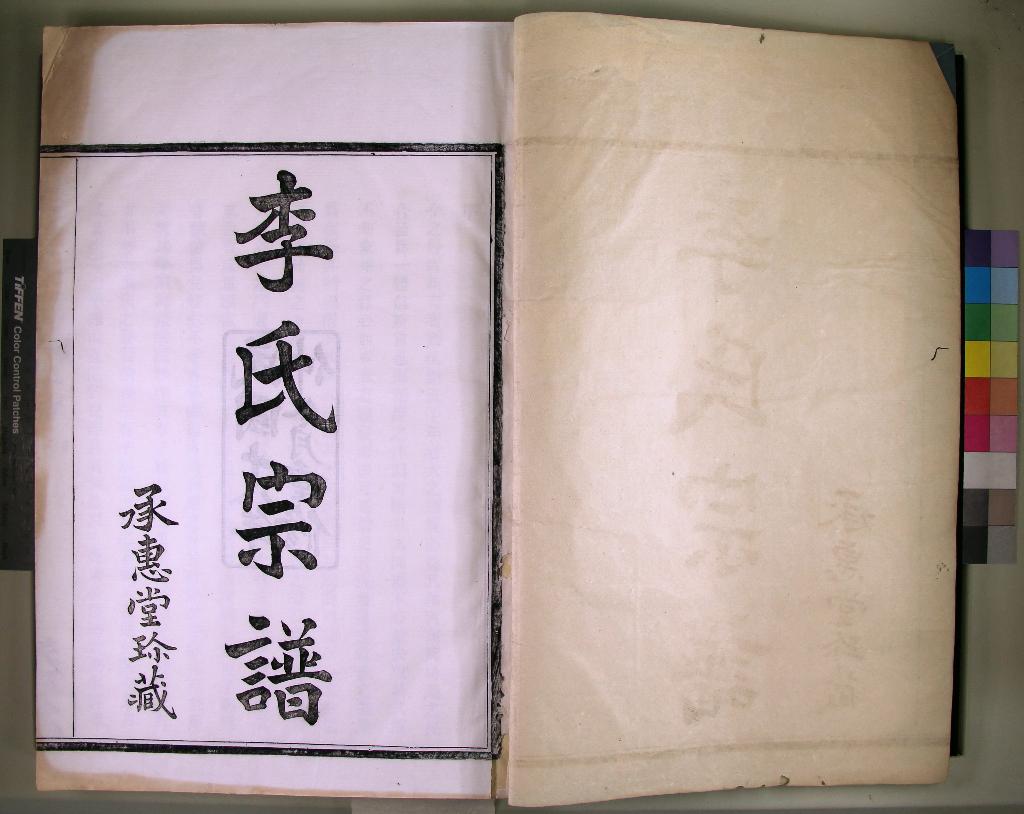 李氏宗譜
承惠堂珍藏
TIFFEN Color Control Patches